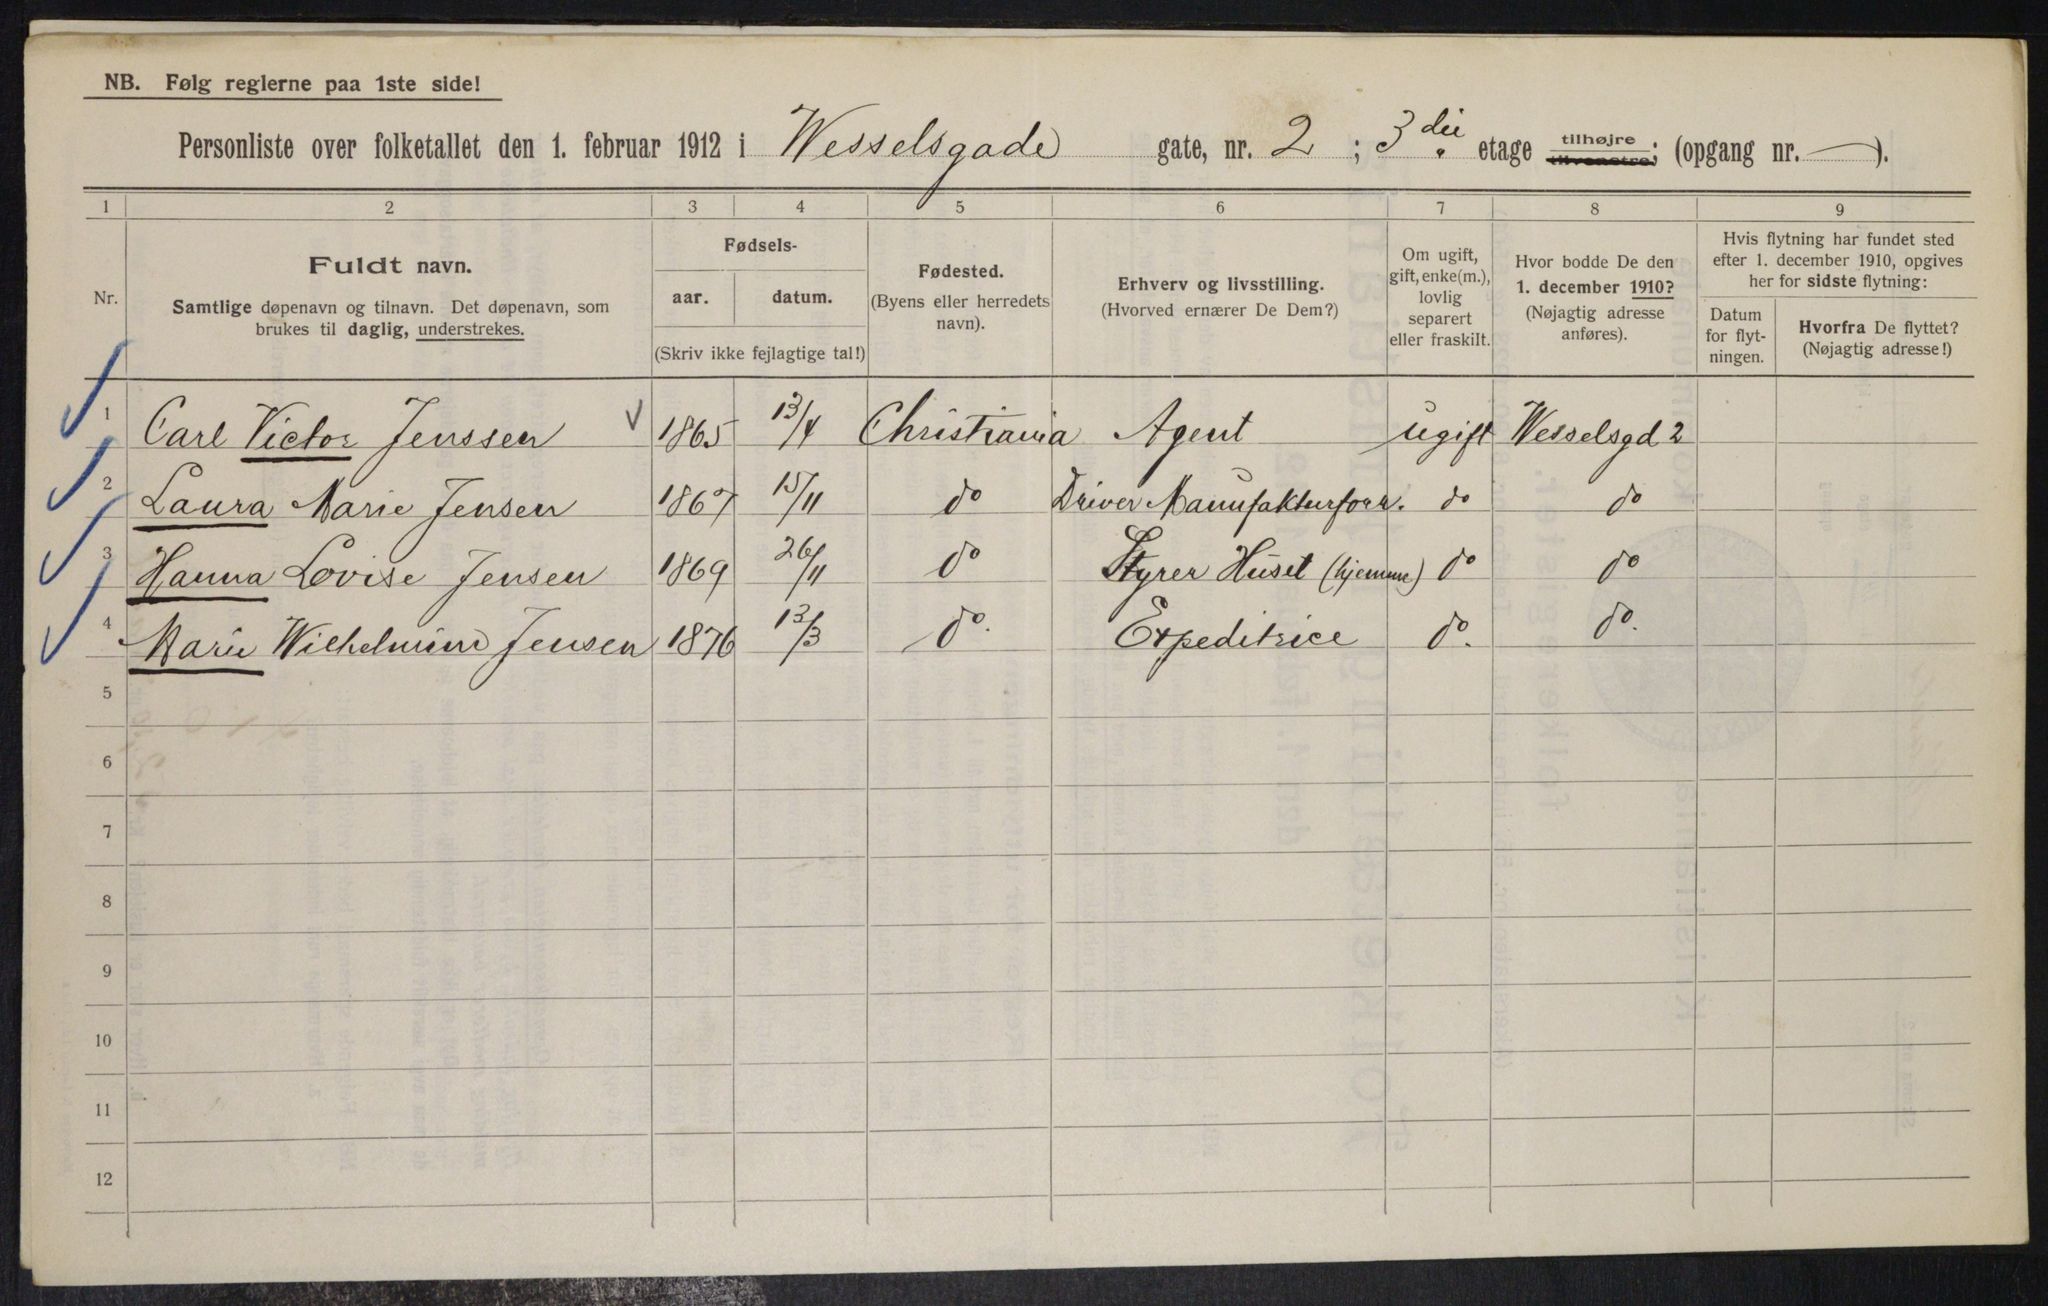 NB. Følg reglerne paa 1ste side!
Personliste over folketallet den 1. februar 1912 i Wesselsgade gate, nr. 2 ; 3die etage tilhøjre tilvenstre; (opgang nr. —).
1 2 3 4 5 6 7 8 9
Nr.
Fuldt navn.
Samtlige døpenavn og tilnavn. Det døpenavn, som
brukes til daglig, understrekes.
Fødsels-
aar. datum.
(Skriv ikke fejlagtige tal!)
Fødested.
(Byens eller herredets
navn).
Erhverv og livsstilling.
(Hvorved ernærer De Dem?)
Om ugift,
gift, enke(m.),
lovlig
separert
eller fraskilt.
Hvor bodde De den
1. december 1910?
(Nøjagtig adresse
anføres).
Hvis flytning har fundet sted
efter 1. december 1910, opgives
her for sidste flytning:
Datum
for flyt-
ningen.
Hvorfra De flyttet?
(Nøjagtig adresse!)
1 Carl Victor Jenssen 1865 13/4 Christiania Agent ugift Wesselsgd 2
2 Laura Marie Jensen 1867 15/11 do Driver Manufakturforr. do do
3 Hanna Lovise Jensen 1869 26/11 do Styrer Huset (hjemme) do do
4 Marie Wilhelmine Jensen 1876 13/3 do. Expeditrice do. do.
5
6
7
8
9
10
11
12